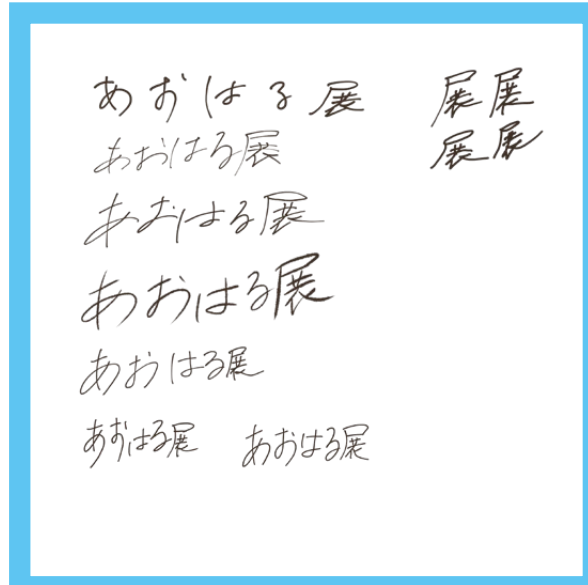 あおはる展 展展
あおはる展 展展
あおはる展
あおはる展
あおはる展
あおはる展 あおはる展